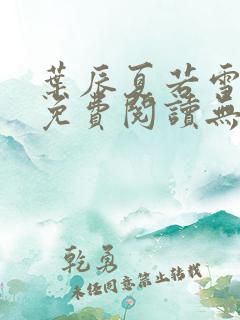 葉辰夏若雪
免費閱讀無
乾勇
未經同意禁止轉載